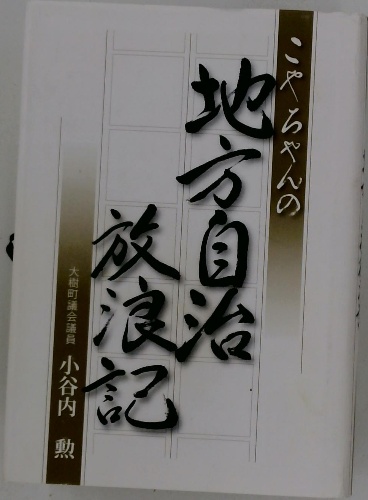 こやちゃんの
地方自治
放浪記
大樹町議会議員
小谷内 勲